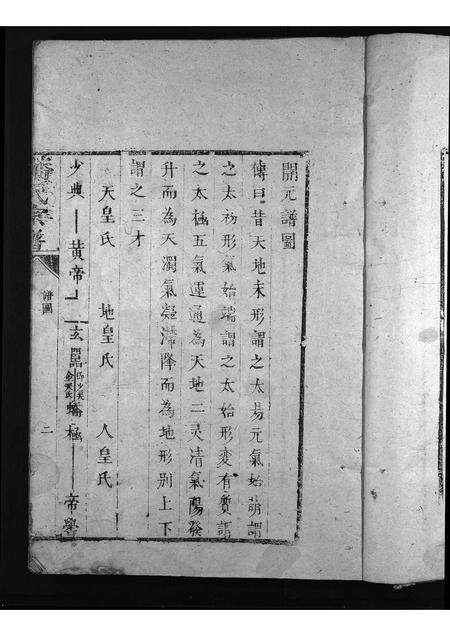 開元譜圖
傳曰昔天地未形謂之太易元氣始萌謂
之太初形氣始端謂之太始形變有質謂
之太極五氣運通為天地二灵清氣陽發
升而為天濁氣凝滯降而為地形别上下
謂之三才
天皇氏 地皇氏 人皇氏
少典 黄帝 玄囂 蟜極 帝嚳
譜圖
二